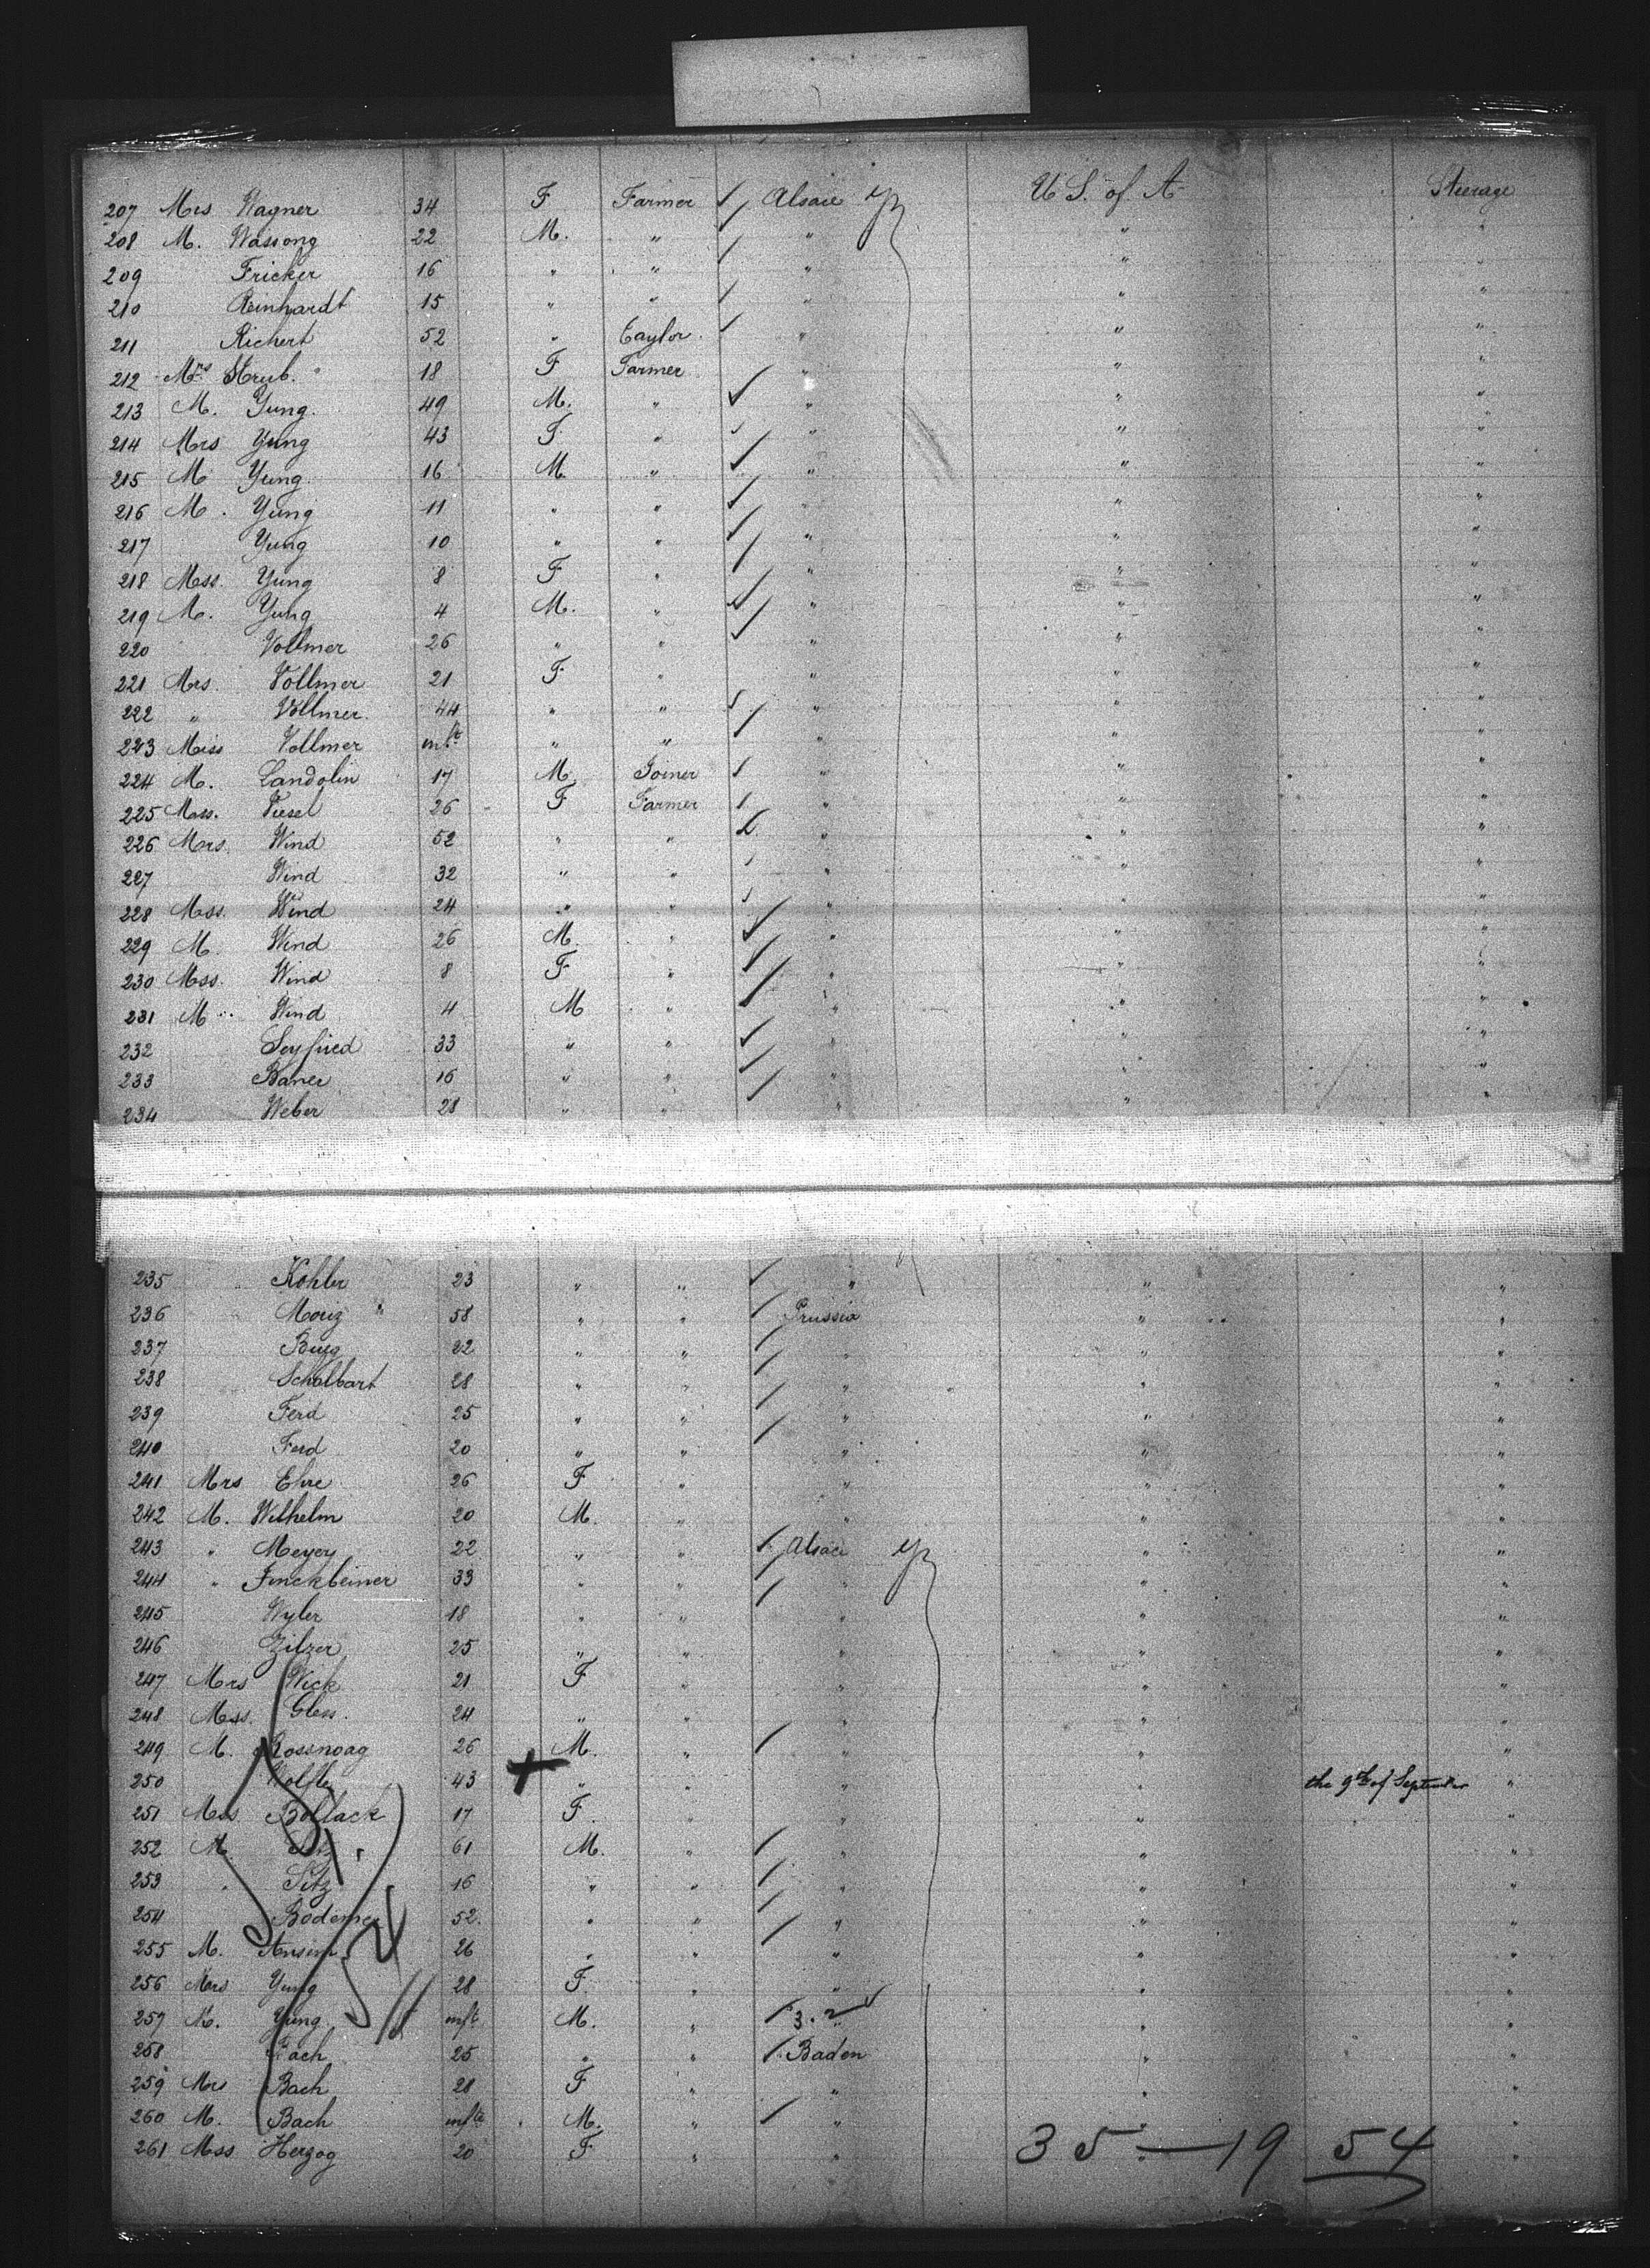 207 Mrs Wagner 34 F Farmer Alsace U S. of A. Steerage
208 M. Wassong 22 M. " " " "
209 Fricker 16 " " " " "
210 Reinhardt 15 " " " " "
211 Richert 52 " Taylor. " " "
212 Mrs Strub. 18 F Farmer " " "
213 M. Yung. 49 M. " " " "
214 Mrs Yung 43 F. " " " "
215 M Yung. 16 M. " " " "
216 M. Yung 11 " " " " "
217 Yung 10 " " " " "
218 Mss. Yung 8 F " " " "
219 M. Yung 4 M. " " " "
220 Vollmer 26 " " " " "
221 Mrs. Vollmer 21 F " " " "
222 " Vollmer. 44 " " " " "
223 Miss Vollmer inft " " " " "
224 M. Landolin 17 M. Joiner " " "
225 Mss. Viesel 26 F Farmer " " "
226 Mrs. Wind 52 " " " " "
227 Wind 32 " " " " "
228 Mss. Wind 24 " " " " "
229 M. Wind 26 M. " " " "
230 Mss. Wind 8 F " " " "
231 M Wind 4 M " " " "
232 Seyfried 33 " " " " "
233 Baner 16 " " " " "
234 Weber 28 " " " "
235 Kohler 23 " " " " "
236 Moriz 58 " " Prussia " "
237 22 " " " " "
238 Schalbart 28 " " " " "
239 Ferd 25 " " " " "
240 Ferd 20 " " " " "
241 Mrs 26 F " " " "
242 M. Wilhelm 20 M. " " " "
243 " Meyer 22 " " Alsace " "
244 " Finckbeiner 33 " " " " "
245 Wyler 18 " " " " "
246 Zilzer 25 " " " " "
247 Mrs Wick 21 F " " " "
248 Mss. Gless. 24 " " " " "
249 M. Rossnoag 26 M. " " " "
250 43 " " " " the 9th of September "
251 Mss Bollack 17 F. " " " "
252 M. 61 M. " " " "
253 " Sitz 16 " " " " "
254 Bodemer 52. " " " " "
255 M. 26 " " " " "
256 Mrs Yung 28 F. " " " "
257 M. Yung inft M. " 3.2 " "
258 Bach 25 " " Baden " "
259 Mrs Bach 28 F " " " "
260 M. Bach inft M. " " " "
261 Mss Herzog 20 F " " " "
35 — 19 54